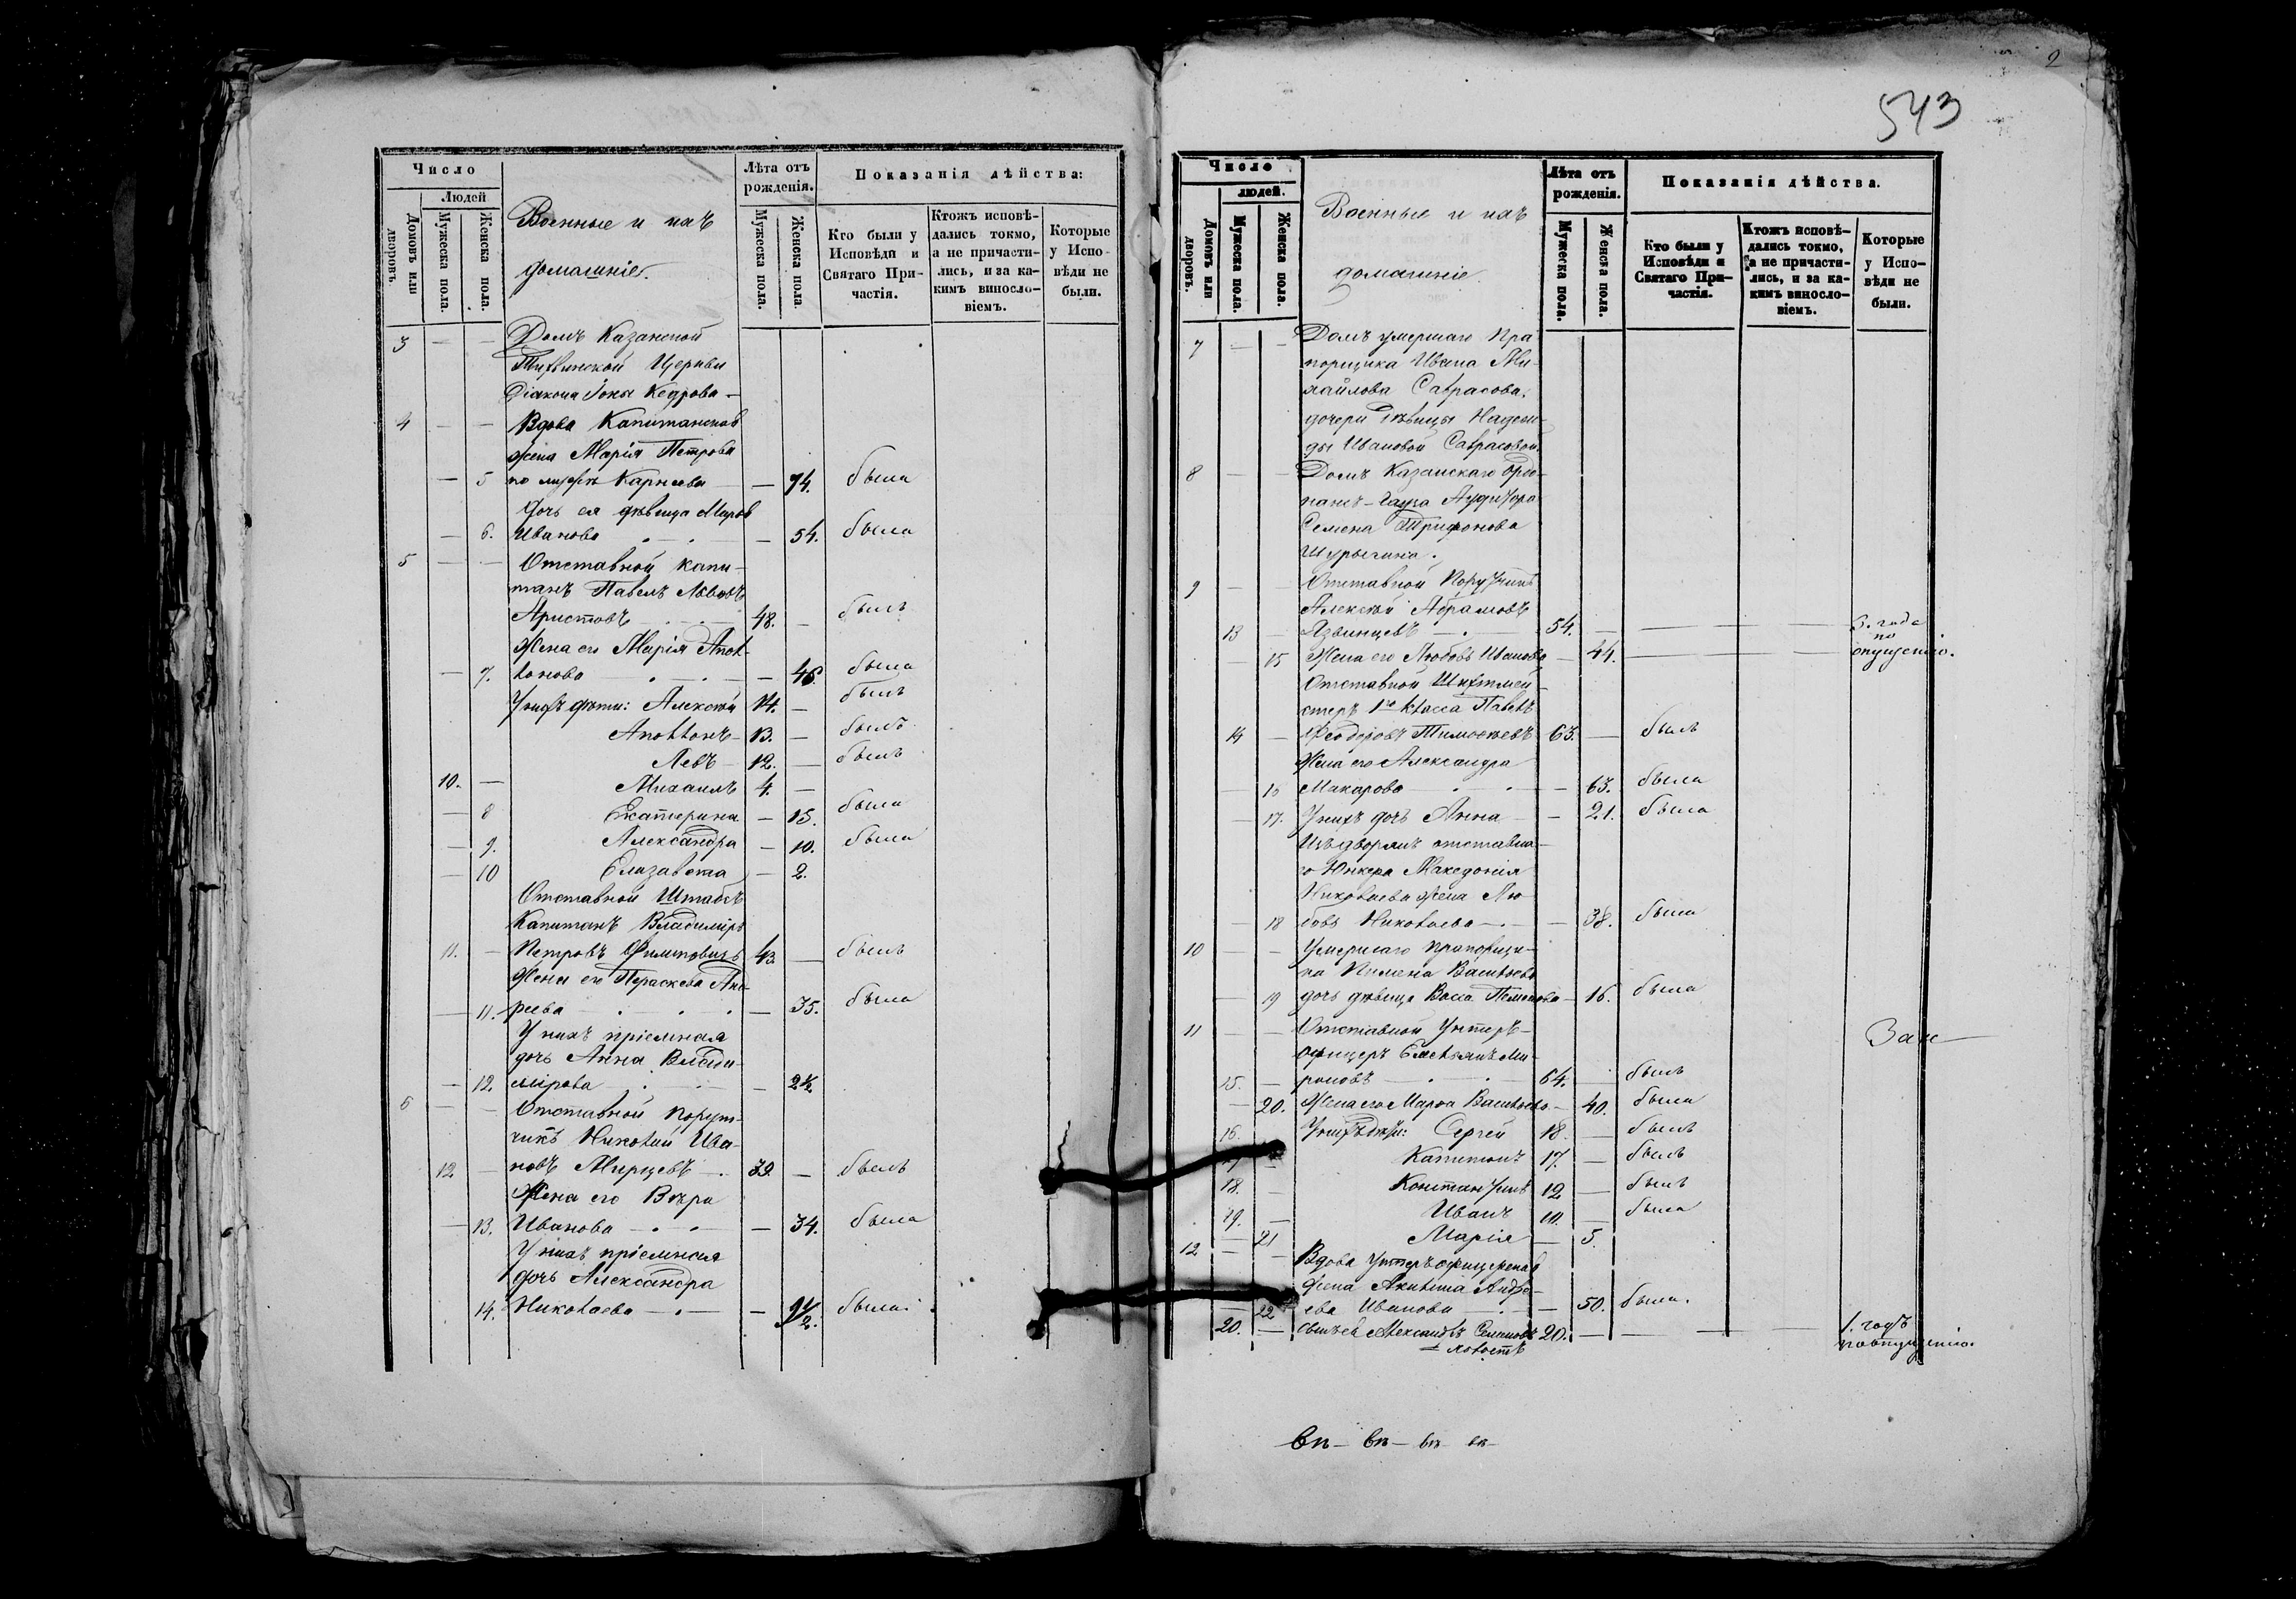 Число
Людей
Домовъ или дворовъ.
Мужеска пола.
Женска пола.
Военные и ихъ
домашніе.
Лѣта отъ рожденія.
Мужеска пола.
Женска пола.
Показанія дѣйства:
Кто были у Исповѣди и Святаго Причастія.
Ктожъ исповѣдались токмо, а не причастились, и за какимъ винословіемъ.
Которые у Исповѣди не были.
3 — — Домъ Казанской
Тихвинской Церкви
Діакона Іона Кедрова —
4 — — Вдова Капитанская
жена Марія Петрова
— 5 по мужѣ Карнеева — 74. была
Дочь ея дѣвица Марѳа
— 6. Иванова — 54. была
5 — — Отставной Капи-
танъ Павелъ Львовъ
Аристовъ 48. — былъ
Жена его Марія Апол-
— 7. лонова — 46. была
У нихъ дѣти: Алексѣй 14. — былъ
Аполлонъ 13. — былъ
Левъ — 12. — былъ
10. — Михаилъ 4. —
— 8 Екатерина — 15. была
— 9. Александра — 10. была
— 10 Елизавета — 2.
Отставной Штабсъ
Капитанъ Владиміръ
11. — Петровъ Филиповичъ 43. — былъ
Жена его Параскева Анд-
— 11. реева — 35. была
У нихъ пріемная
дочь Анна Влади-
— 12. мірова — 2½
6 — — Отставной Порут-
чикъ Николай Ива-
12 — новъ Мирцевъ 39 — былъ
Жена его Вѣра
— 13. Иванова — 34. была
У нихъ пріемная
дочь Александра
14. Николаева — 9½. была.
2
543
Число
людей.
Домовъ или дворовъ.
Мужеска пола.
Женска пола.
Военные и ихъ
домашніе.
Лѣта отъ рожденія.
Мужеска пола.
Женска пола.
Показанія дѣйства.
Кто были у Исповѣди и Святаго Причастія.
Ктожъ исповѣдались токмо, а не причастились, и за какимъ винословіемъ.
Которые у Исповѣди не были.
7 — — Домъ умершаго Пра
порщика Ивана Ми-
хайлова Саврасова.
дочери дѣвицы Надеж-
ды Ивановой Саврасовой.
8 — — Домъ Казанскаго Орд-
нансъ-Гауза Аудитора
Семена Трифонова
Шурыгина.
9 — — Отставной Поручикъ
Алексѣй Абрамовъ
13 — Язвинцевъ 54. — — — 3. года
по
— 15 Жена его Любовь Иванова — 44. — — опущенію.
Отставной Шихтмей-
стеръ 1го класса Павелъ
14 — Ѳеодоровъ Тимоѳеевъ 63. — былъ
Жена его Александра
— 16 Макарова — 63. была
— 17. У нихъ дочь Анна — 21. была
Изъ дворянъ отставна-
го Юнкера Македонія
Николаева жена Лю-
— 18 бовь Николаева — 38. была
10 — — Умершаго Прапорщи-
ка Пимена Васильева
— 19 дочь дѣвица Васса Пименова — 16. была
11 — — Отставной Унтеръ-
офицеръ Емельянъ Ми-
15. — роновъ 64. — былъ
— 20. Жена его Марѳа Васильева — 40. была
16. У нихъ дѣти: Сергей 18. — былъ
17 — Капитонъ 17. — былъ
18. — Константинъ 12 — былъ
19. — Иванъ 10. — была
— 21 Марія — 5.
12 — — Вдова Унтеръ офицерская
жена Акилина Андре-
— 22 ева Иванова — 50. была.
20. — сынъ ея Александръ Семеновъ 20. — — — 1. годъ
холостъ по опущенію.
вп — вп — вп — вп —